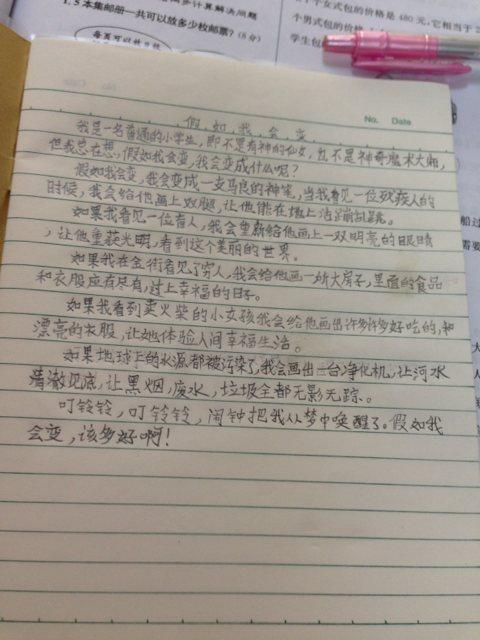 1.5本集邮册一共可以放多少枚邮票?(8分)
个女式包的价格是480元,它相当于
个男式包的价格
学生包
No. Date
假如我会变
我是一名普通的小学生,即不是有神的仙女,也不是神奇魔术大师,
但我总在想,假如我会变,我会变成什么呢?
假如我会变,我会变成一支马良的神笔,当我看见一位残疾人的
时候,我会给他画上双腿,让他能在地上活蹦乱跳。
如果我看见一位盲人,我会重新给他画上一双明亮的眼睛
,让他重获光明,看到这个美丽的世界。
如果我在金街看见了穷人,我会给他画一所大房子,里面的食品
和衣服应有尽有,过上幸福的日子。
如果我看到卖火柴的小女孩我会给他画出许多许多好吃的,和
漂亮的衣服,让她体验人间幸福生活。
如果地球上的水源都被污染了,我会画出一台净化机,让河水
清澈见底,让黑烟,废水,垃圾全都无影无踪。
叮铃铃,叮铃铃,闹钟把我从梦中唤醒了。假如我
会变,该多好啊!